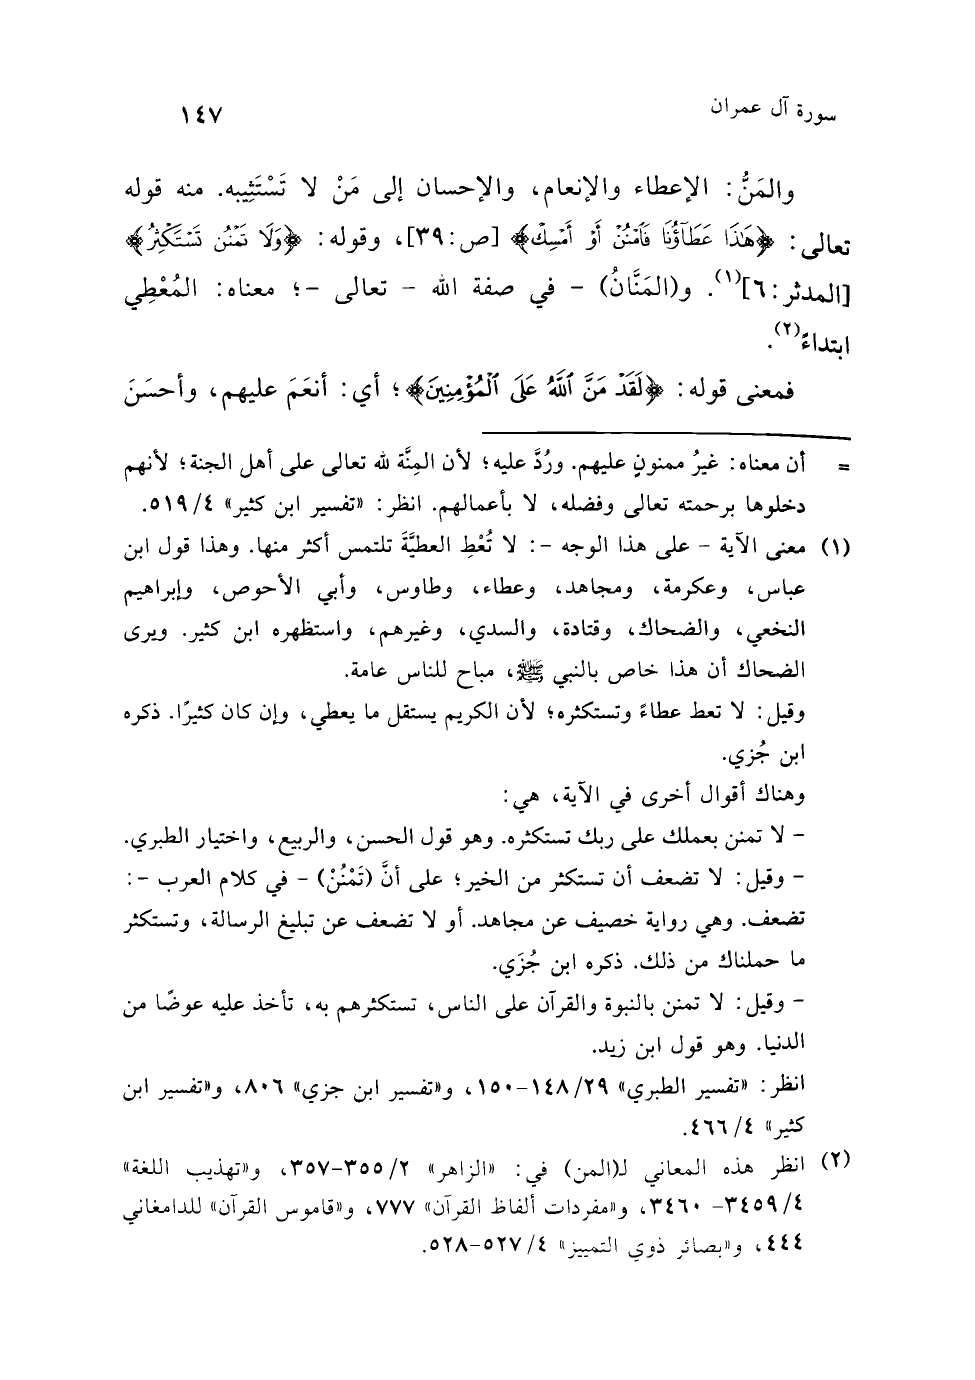 سورة آل عمران ١٤٧
والمَنُّ: الإعطاء والإنعام، والإحسان إلى مَنْ لا تَسْتَثِيبه. منه قوله
تعالى: ﴿هَٰذَا عَطَآؤُنَا فَٱمْنُنْ أَوْ أَمْسِكْ﴾ [ص:٣٩]، وقوله: ﴿وَلَا تَمْنُن تَسْتَكْثِرُ﴾
[المدثر:٦](١). و(المَنَّانُ) - في صفة الله - تعالى -؛ معناه: المُعْطِي
ابتداءً(٢).
فمعنى قوله: ﴿لَقَدْ مَنَّ ٱللَّهُ عَلَى ٱلْمُؤْمِنِينَ﴾؛ أي: أنعَمَ عليهم، وأحسَنَ
= أن معناه: غيرُ ممنونٍ عليهم. ورُدَّ عليه؛ لأن المِنَّة لله تعالى على أهل الجنة؛ لأنهم
دخلوها برحمته تعالى وفضله، لا بأعمالهم. انظر: «تفسير ابن كثير» ٤/ ٥١٩.
(١) معنى الآية - على هذا الوجه -: لا تُعْطِ العطيَّةَ تلتمس أكثر منها. وهذا قول ابن
عباس، وعكرمة، ومجاهد، وعطاء، وطاوس، وأبي الأحوص، وإبراهيم
النخعي، والضحاك، وقتادة، والسدي، وغيرهم، واستظهره ابن كثير. ويرى
الضحاك أن هذا خاص بالنبي ﷺ، مباح للناس عامة.
وقيل: لا تعط عطاءً وتستكثره؛ لأن الكريم يستقل ما يعطي، وإن كان كثيرًا. ذكره
ابن جُزي.
وهناك أقوال أخرى في الآية، هي:
- لا تمنن بعملك على ربك تستكثره. وهو قول الحسن، والربيع، واختيار الطبري.
- وقيل: لا تضعف أن تستكثر من الخير؛ على أنَّ (تَمْنُنْ) - في كلام العرب -:
تضعف. وهي رواية خصيف عن مجاهد. أو لا تضعف عن تبليغ الرسالة، وتستكثر
ما حملناك من ذلك. ذكره ابن جُزَي.
- وقيل: لا تمنن بالنبوة والقرآن على الناس، تستكثرهم به، تأخذ عليه عوضًا من
الدنيا. وهو قول ابن زيد.
انظر: «تفسير الطبري» ٢٩/ ١٤٨-١٥٠، و«تفسير ابن جزي» ٨٠٦، و«تفسير ابن
كثير» ٤/ ٤٦٦.
(٢) انظر هذه المعاني لـ(المن) في: «الزاهر» ٢/ ٣٥٥-٣٥٧، و«تهذيب اللغة»
٤/ ٣٤٥٩- ٣٤٦٠، و«مفردات ألفاظ القرآن» ٧٧٧، و«قاموس القرآن» للدامغاني
٤٤٤، و«بصائر ذوي التمييز» ٤/ ٥٢٧-٥٢٨.